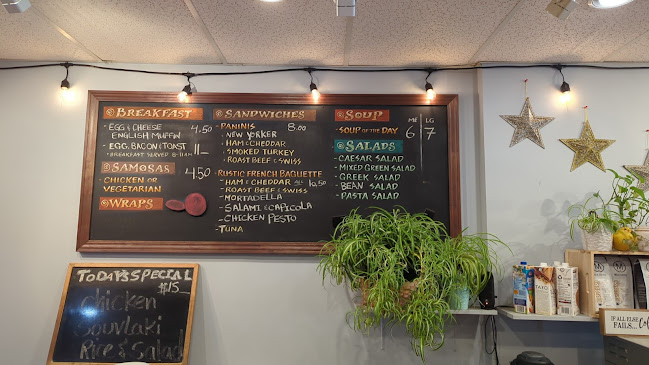 BREAKFAST
- EGG & CHEESE 4.50
ENGLISH MUFFIN
- EGG, BACON & TOAST 11 -
* BREAKFAST SERVED 8-11AM
SAMOSAS 4.50
- CHICKEN OR
VEGETARIAN
WRAPS
SANDWICHES
PANINIS 8.00
- NEW YORKER
- HAM & CHEDDAR
- SMOKED TURKEY
- ROAST BEEF & SWISS
RUSTIC FRENCH BAGUETTE
- HAM & CHEDDAR 10.50
- ROAST BEEF & SWISS
- MORTADELLA
- SALAMI & CAPICOLA
- CHICKEN PESTO
- TUNA
SOUP ME LG
- SOUP OF THE DAY 6 7
SALADS
- CAESAR SALAD
- MIXED GREEN SALAD
- GREEK SALAD
- BEAN SALAD
- PASTA SALAD
TODAY'S SPECIAL
$15
Chicken
Souvlaki
Rice & Salad
IF ALL ELSE
FAILS...